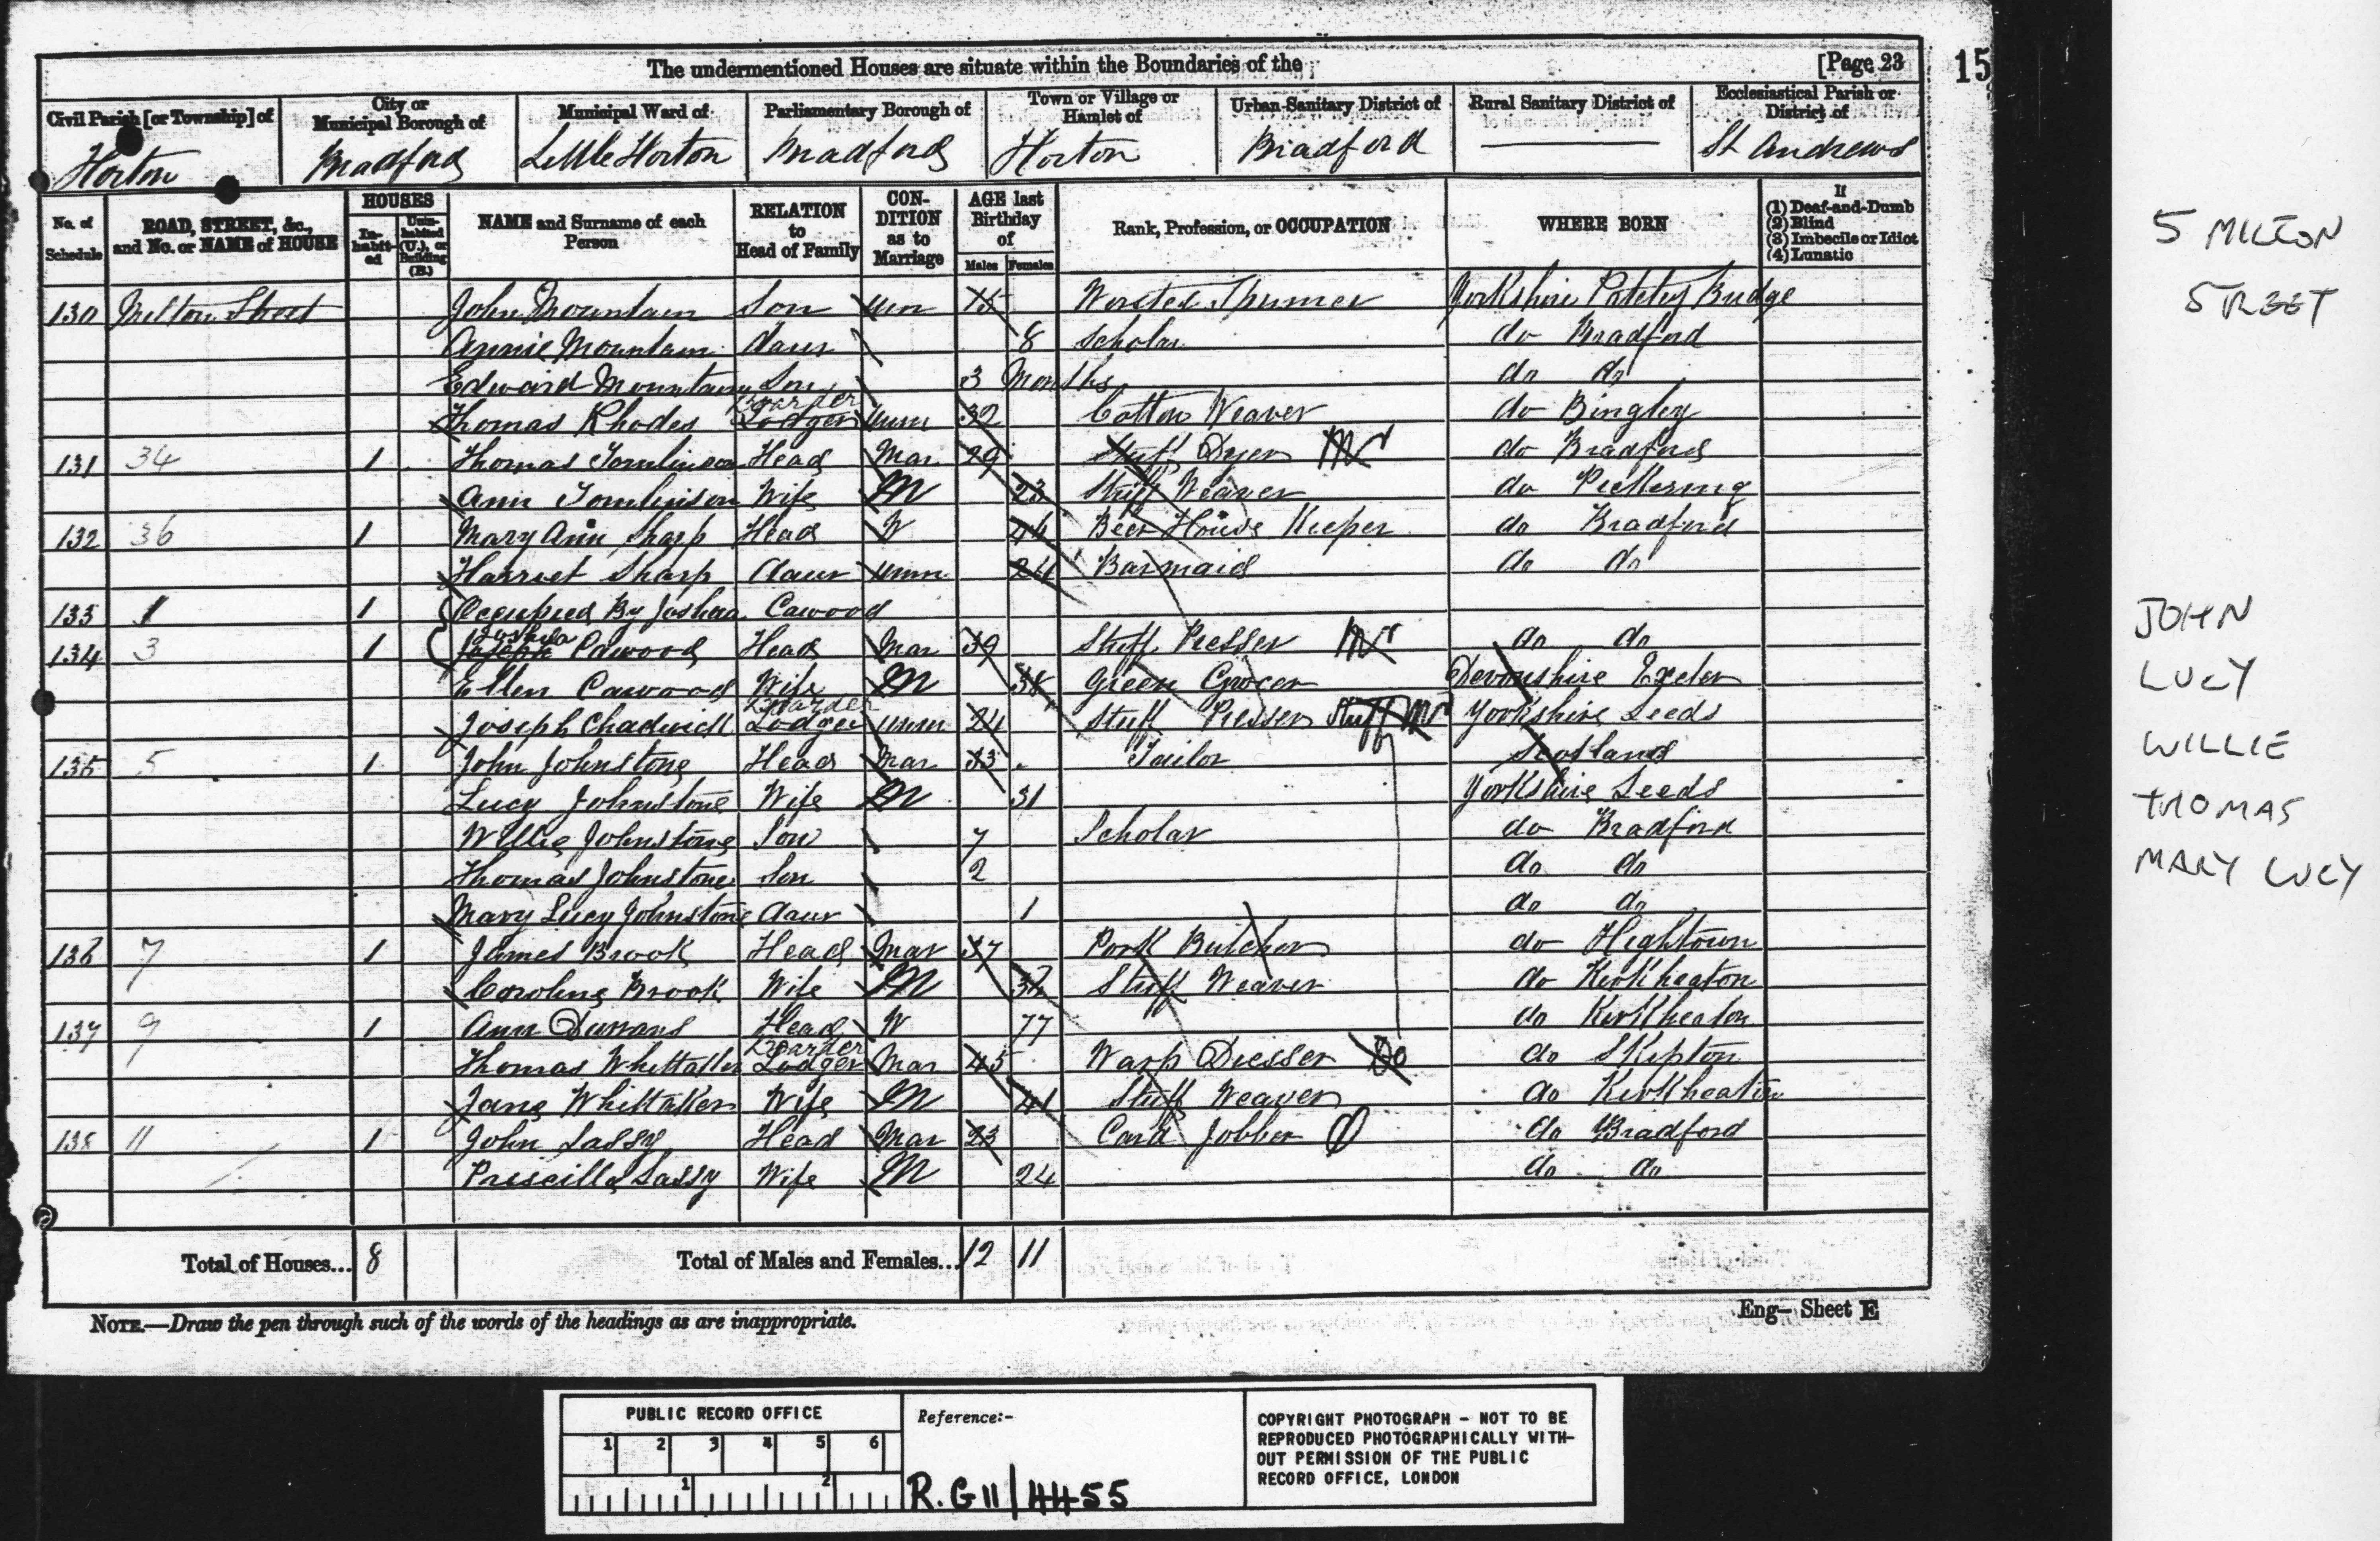 The undermentioned Houses are situate within the Boundaries of the [Page 23 15
Civil Parish [or Township] of City or Municipal Borough of Municipal Ward of Parliamentary Borough of Town or Village or Hamlet of Urban Sanitary District of Rural Sanitary District of Ecclesiastical Parish or District of
Horton Bradford Little Horton Bradford Horton Bradford St Andrews
No. of Schedule ROAD, STREET, &c., and No. or NAME of HOUSE HOUSES Inhabited Uninhabited (U.), or Building (B.) NAME and Surname of each Person RELATION to Head of Family CONDITION as to Marriage AGE last Birthday of Males Females Rank, Profession, or OCCUPATION WHERE BORN If (1) Deaf-and-Dumb (2) Blind (3) Imbecile or Idiot (4) Lunatic
130 Milton Street John Mountain Son Unm 15 Worsted Spinner Yorkshire Pateley Bridge
Annie Mountain daur 8 Scholar do Bradford
Edward Mountain Son 3 Months do do
Thomas Rhodes Boarder Lodger Unm 32 Cotton Weaver do Bingley
131 34 1 Thomas Tomlinson Head Mar 29 Stuff Dyer do Bradford
Ann Tomlinson Wife M 23 Stuff Weaver do Pickering
132 36 1 Mary Ann Sharp Head W 44 Beer House Keeper do Bradford
Harriet Sharp daur Unm 24 Barmaid do do
133 1 1 Occupied By Joshua Cawood
134 3 1 Joshua Cawood Head Mar 39 Stuff Presser do do
Ellen Cawood Wife M 38 Green Grocer Devonshire Exeter
Joseph Chadwick Boarder Lodger Unm 24 Stuff Presser Stuff Yorkshire Leeds
135 5 1 John Johnstone Head Mar 33 Tailor Scotland
Lucy Johnstone Wife M 31 Yorkshire Leeds
Willie Johnstone Son 7 Scholar do Bradford
Thomas Johnstone Son 2 do do
Mary Lucy Johnstone daur 1 do do
136 7 1 James Brook Head Mar 37 Pork Butcher do Hightown
Caroline Brook Wife M 32 Stuff Weaver do Kirkheaton
137 9 1 Ann Durrans Head W 77 do Kirkheaton
Thomas Whittaker Boarder Lodger Mar 45 Warp Dresser do Skipton
Jane Whittaker Wife M 41 Stuff Weaver do Kirkheaton
138 11 1 John Lassy Head Mar 23 Card Jobber do Bradford
Priscilla Lassy Wife M 24 do do
Total of Houses... 8 Total of Males and Females... 12 11
NOTE.—Draw the pen through such of the words of the headings as are inappropriate.
Eng— Sheet E
5 MILTON
STREET
JOHN
LUCY
WILLIE
THOMAS
MARY LUCY
PUBLIC RECORD OFFICE
1 2 3 4 5 6
1 2
Reference:-
R.G 11/4455
COPYRIGHT PHOTOGRAPH - NOT TO BE
REPRODUCED PHOTOGRAPHICALLY WITH-
OUT PERMISSION OF THE PUBLIC
RECORD OFFICE, LONDON